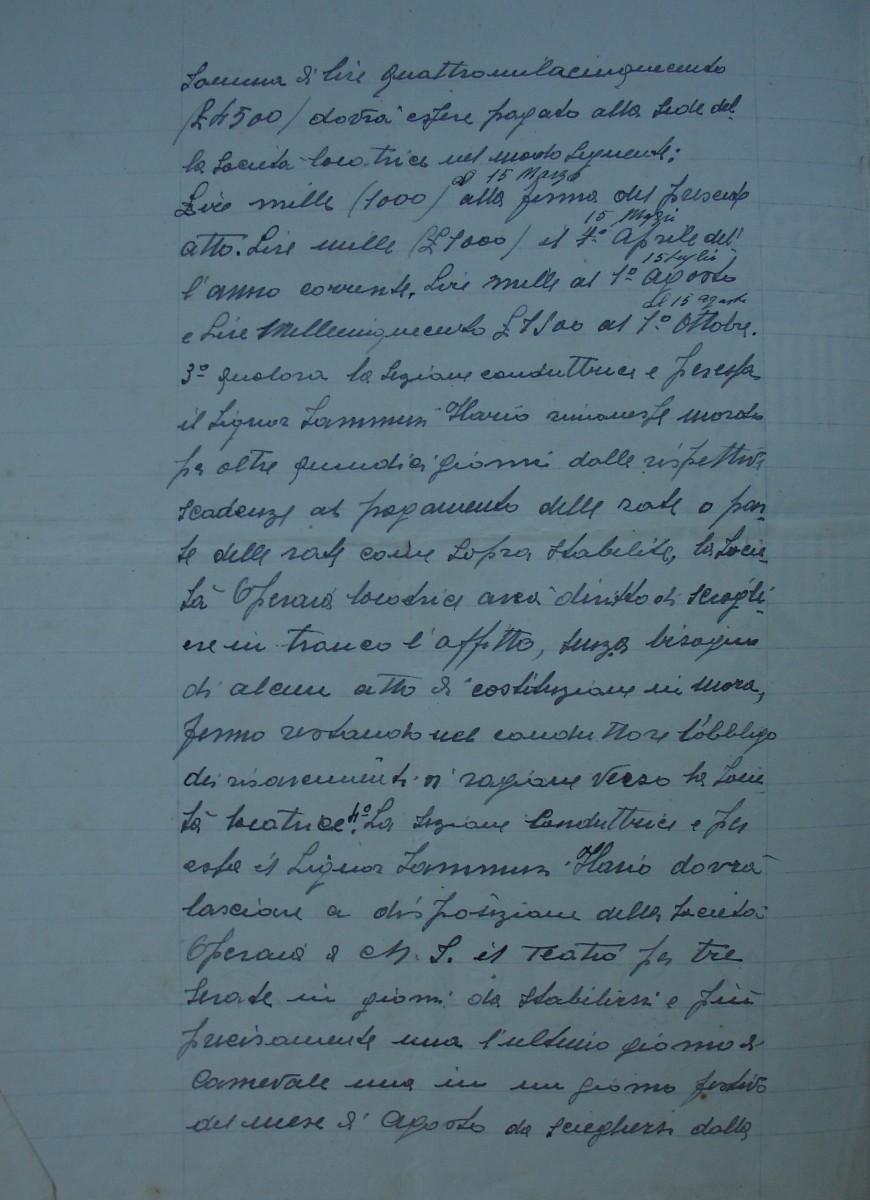 Somma di lire quattromilacinquecento
(£4500) dovrà essere pagato alla sede del-
la Società locatrice nel modo seguente:
al 15 Marzo
Lire mille (1000) alla firma del presente
15 Maggio
atto. Lire mille (£1000) il 1º Aprile del-
15 luglio
l'anno corrente. Lire mille al 1º Agosto
al 15 agosto
e Lire Millecinquecento £1500 al 1º Ottobre.
3º qualora la Sezione conduttrice e per essa
il Signor Sammun Ilario rimanesse moroso
per oltre quindici giorni dalle rispettive
scadenze al pagamento delle rate o par-
te delle rate come sopra stabilite, la Socie-
tà Operaia locatrice avrà diritto di sciogli-
ere in tronco l'affitto, senza bisogno
di alcun atto di costituzione in mora,
fermo restando nel conduttore l'obbligo
dei risarcimenti di ragione verso la Socie-
tà locatrice. 4º La Sezione Conduttrice e per
essa il Signor Sammun Ilario dovrà
lasciare a disposizione della Società
Operaia di M. S. il Teatro per tre
serate in giorni da stabilirsi e più
precisamente una l'ultimo giorno di
Carnevale una in un giorno festivo
del mese di Agosto da scegliersi dalla